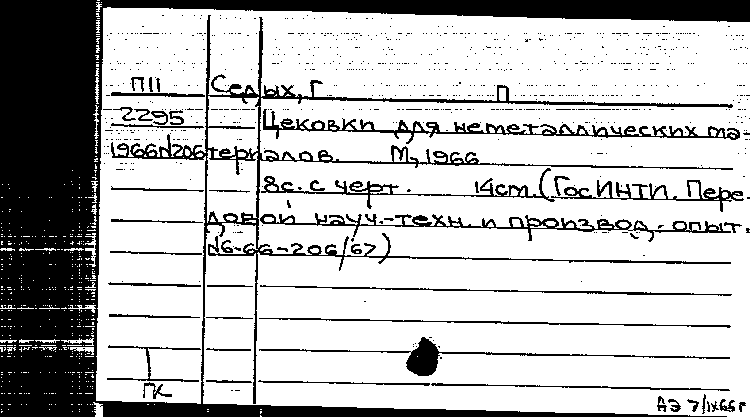 П11 Седых, Г П
2295 Цековки для неметаллических ма-
1966N206 териалов. М, 1966
8с. с черт. 14см. (ГосИНТИ. Пере-
довой науч.-техн. и производ. опыт.
N6-66-206/67)
ПК
АЭ 7/IX66г